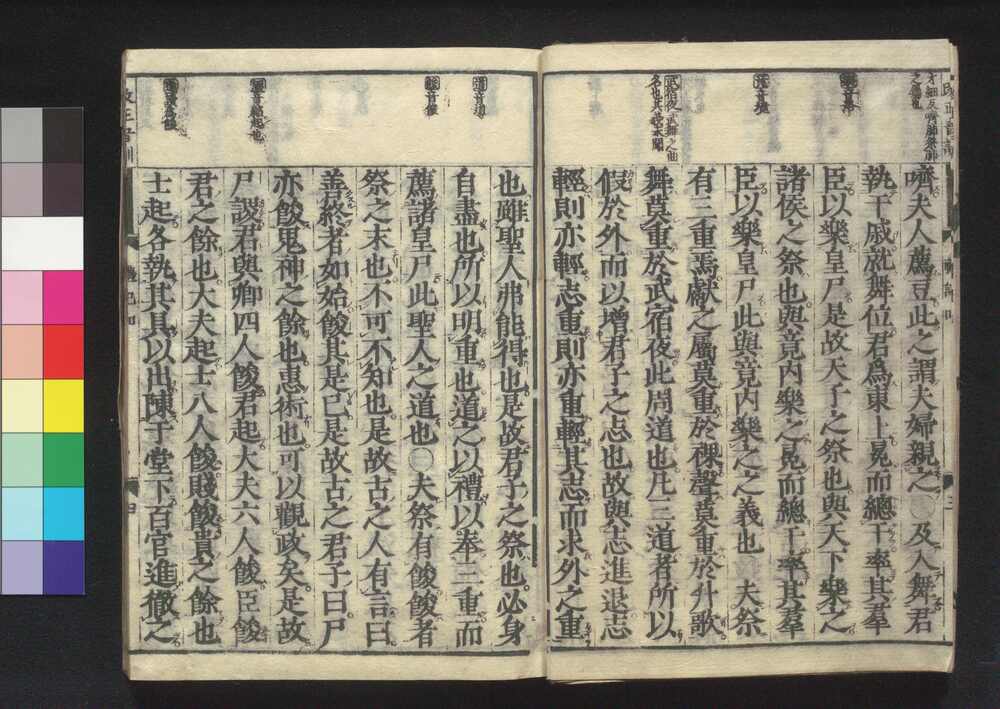 嚌夫人薦豆此之謂夫婦親之○及入舞君
執干戚就舞位君爲東上冕而總干率其羣
臣以樂皇尸是故天子之祭也與天下樂之
諸侯之祭也與竟内樂之冕而總干率其羣
臣以樂皇尸此與竟内樂之之義也 夫祭
有三重焉獻之屬莫重於祼聲莫重於升歌
舞莫重於武宿夜此周道也凡三道者所以
假於外而以增君子之志也故與志進退志
輕則亦輕志重則亦重輕其志而求外之重
也雖聖人弗能得也是故君子之祭也必身
自盡也所以明重也道之以禮以奉三重而
薦諸皇尸此聖人之道也○夫祭有餕餕者
祭之末也不可不知也是故古之人有言曰
善終者如始餕其是已是故古之君子曰尸
亦餕鬼神之餘也惠術也可以觀政矣是故
尸謖君與卿四人餕君起大夫六人餕臣餕
君之餘也大夫起士八人餕賤餕貴之餘也
士起各執其具以出陳于堂下百官進徹之
武宿夜武舞之曲
名也其義未聞
道音導